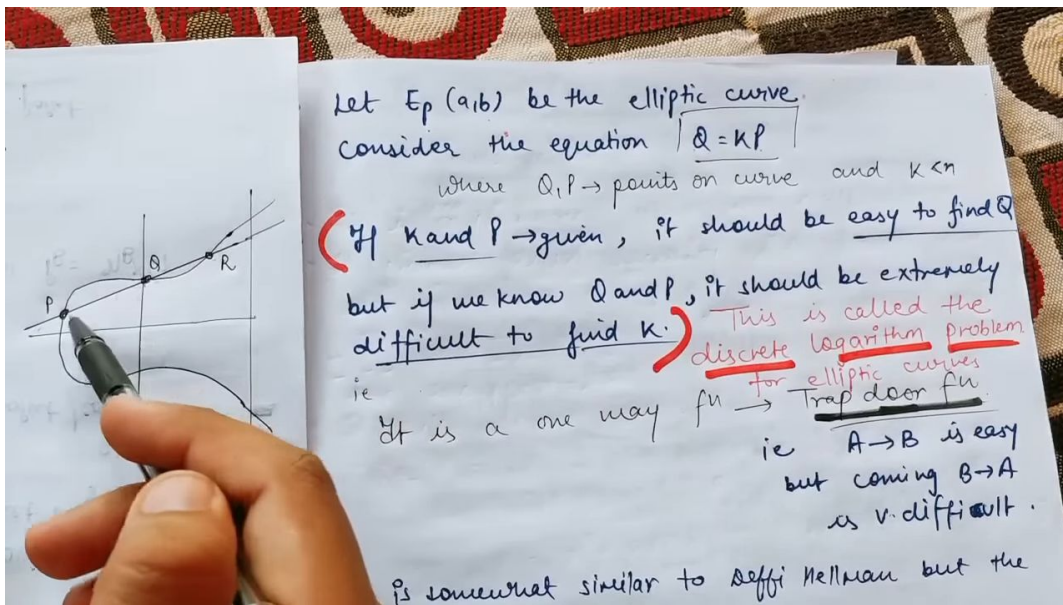 Let Ep (a,b) be the elliptic curve.
consider the equation Q = KP
where Q,P → points on curve and K < n
(If K and P → given, it should be easy to find Q
but if we know Q and P, it should be extremely
difficult to find K.)
This is called the
discrete logarithm problem
for elliptic curves
ie
It is a one way fn → Trap door fn
ie A → B is easy
but coming B → A
is v. difficult.
is somewhat similar to Deffi Hellman but the
P
Q
R